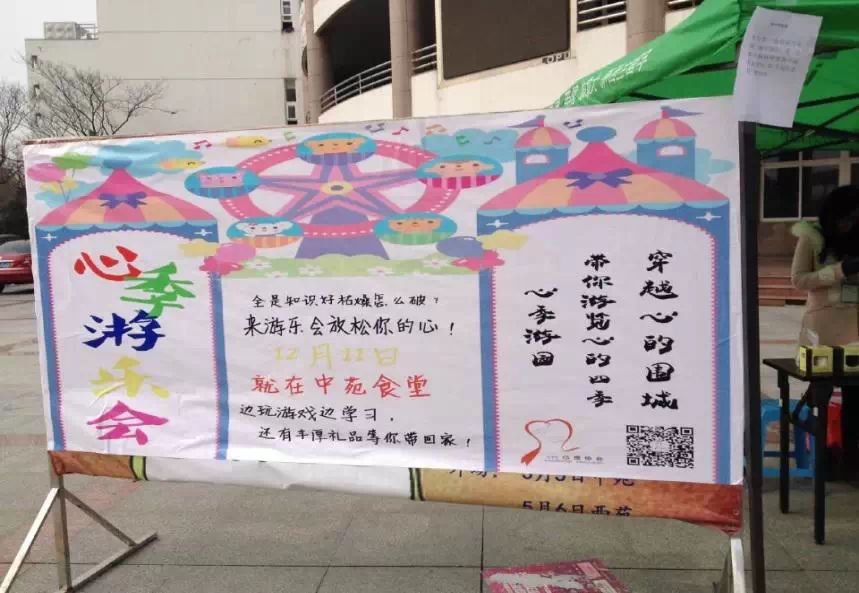 心季游乐会
全是知识好枯燥怎么破？
来游乐会放松你的心！
12月11日
就在中苑食堂
边玩游戏边学习，
还有丰厚礼品等你带回家！
穿越心的围城
带你游览心的四季
心季游园
5月6日西苑